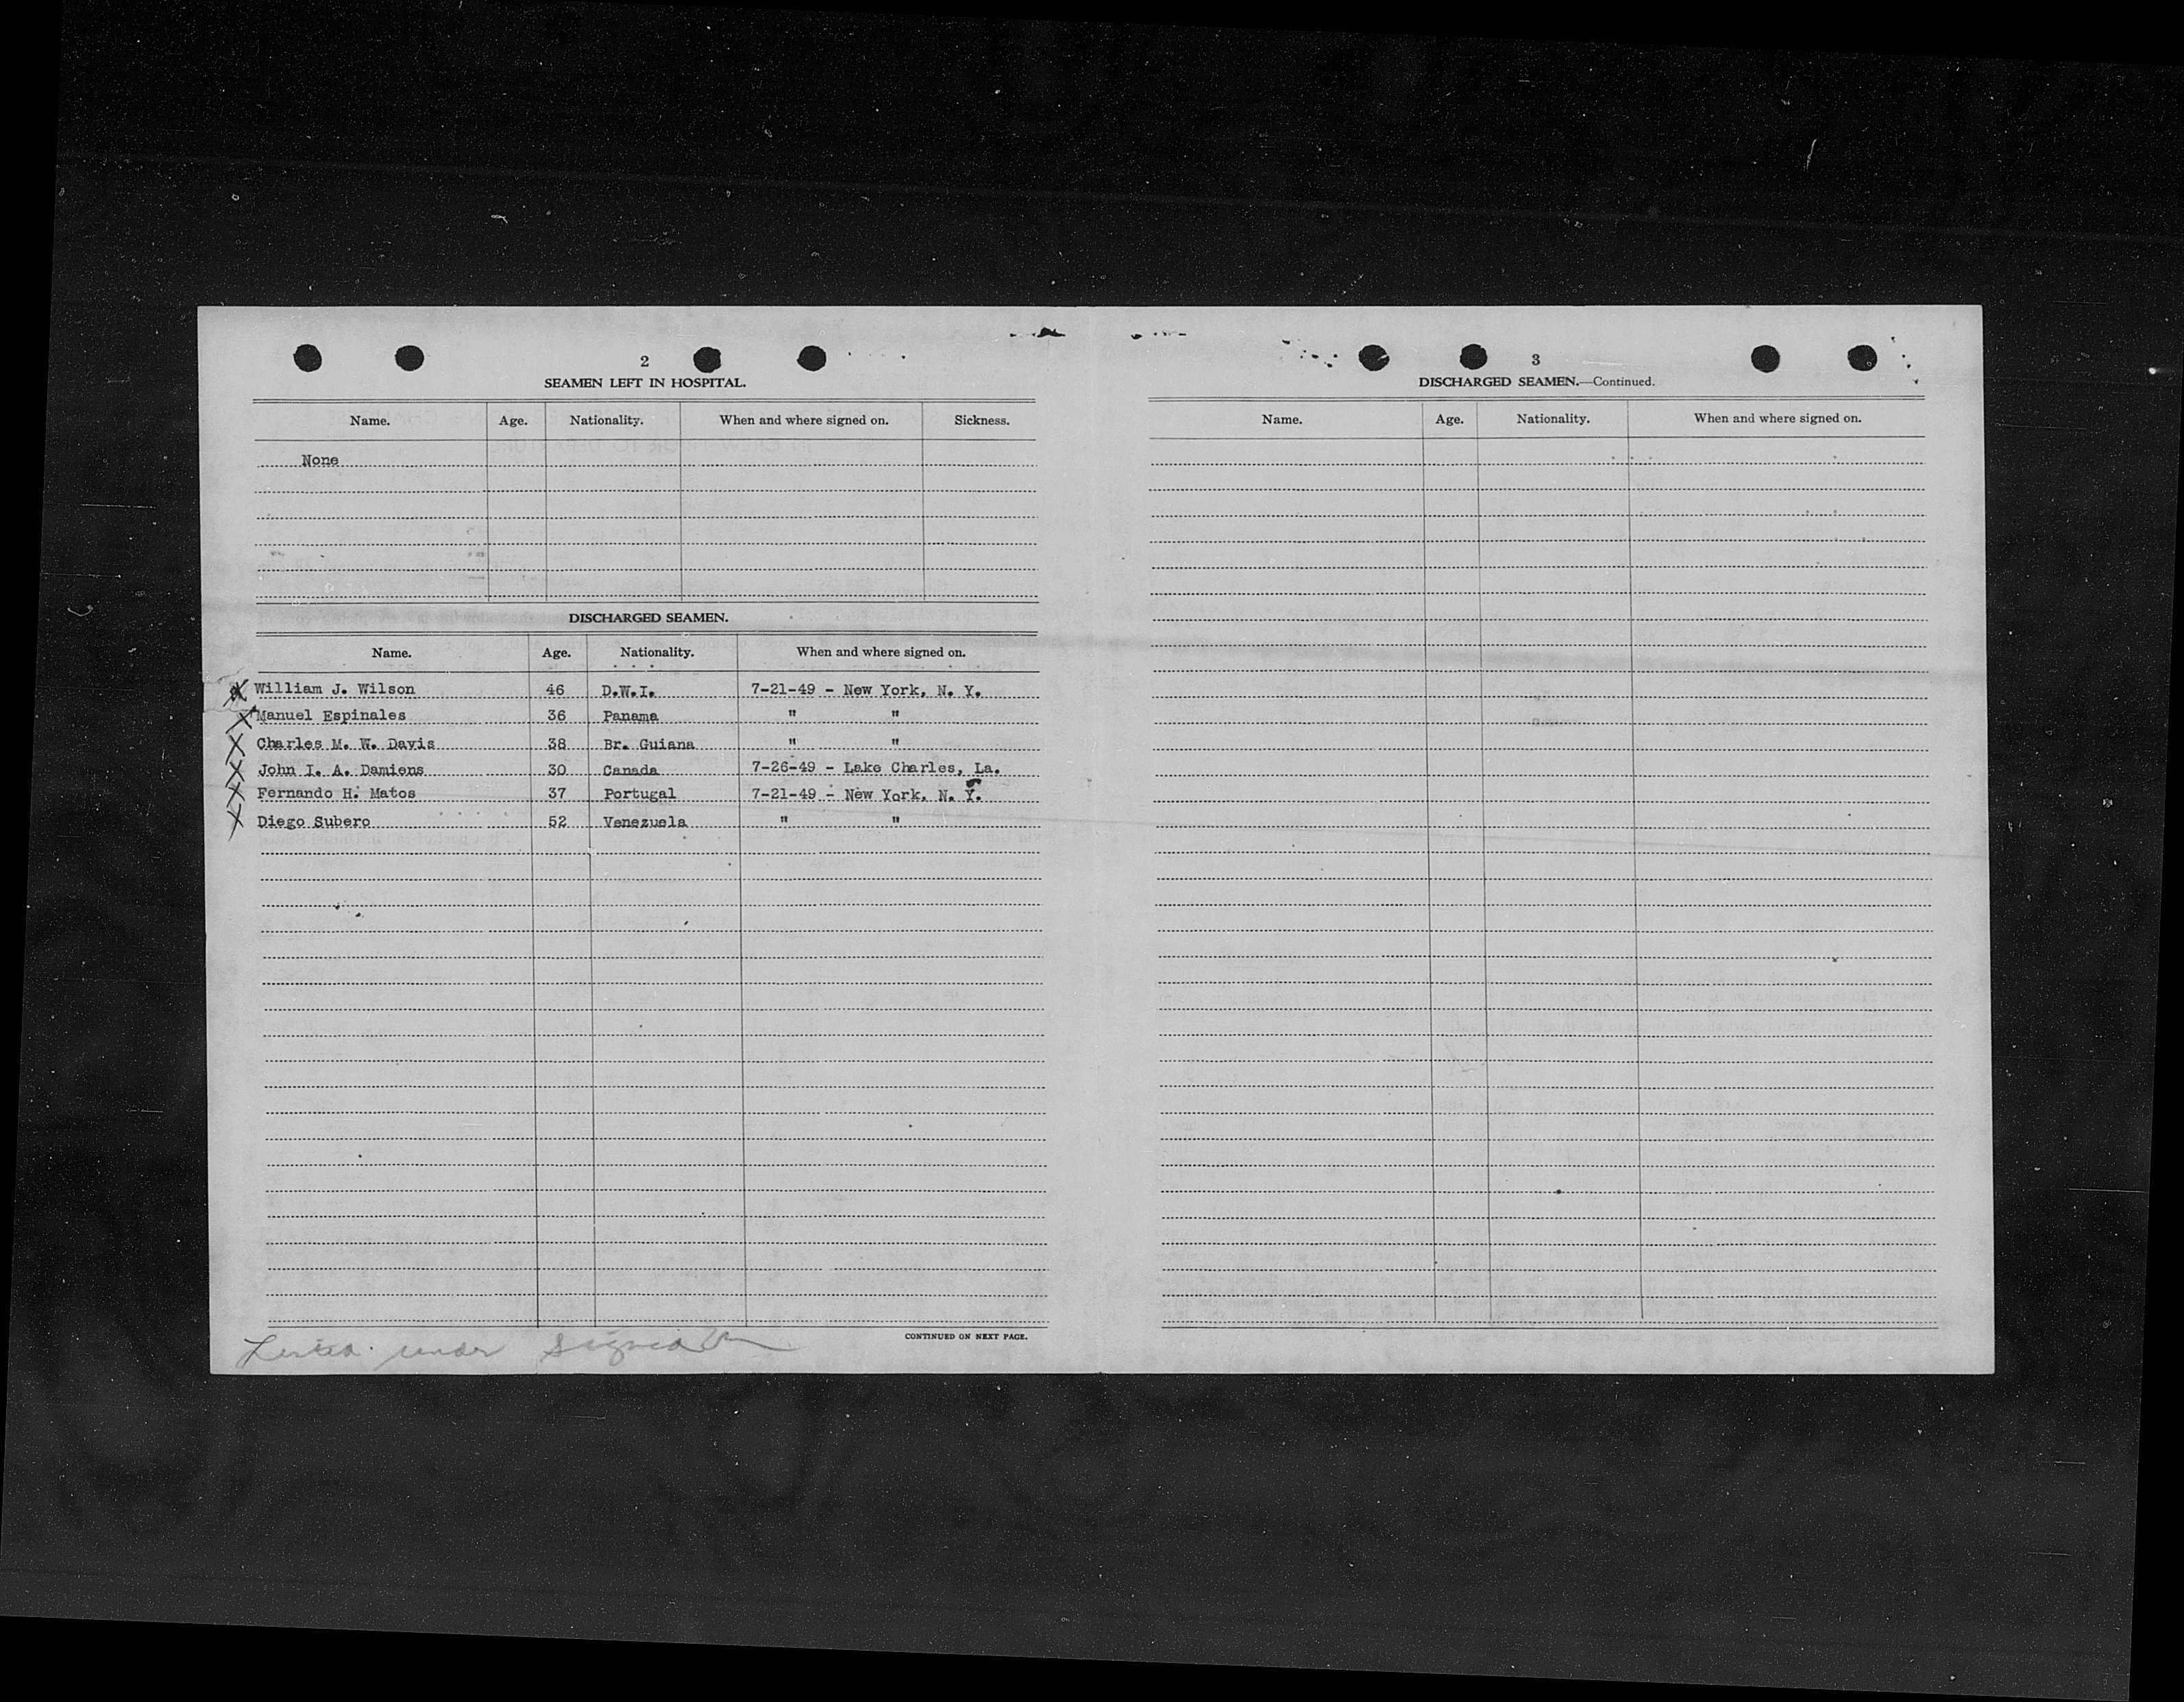 2
SEAMEN LEFT IN HOSPITAL.
Name. Age. Nationality. When and where signed on. Sickness.
None
DISCHARGED SEAMEN.
Name. Age. Nationality. When and where signed on.
X William J. Wilson 46 D.W.I. 7-21-49 - New York, N. Y.
X Manuel Espinales 36 Panama " "
X Charles M. W. Davis 38 Br. Guiana " "
X John I. A. Damiens 30 Canada 7-26-49 - Lake Charles, La.
X Fernando H. Matos 37 Portugal 7-21-49 - New York, N. Y.
X Diego Subero 52 Venezuela " "
CONTINUED ON NEXT PAGE.
Listed under Signed on
3
DISCHARGED SEAMEN.—Continued.
Name. Age. Nationality. When and where signed on.